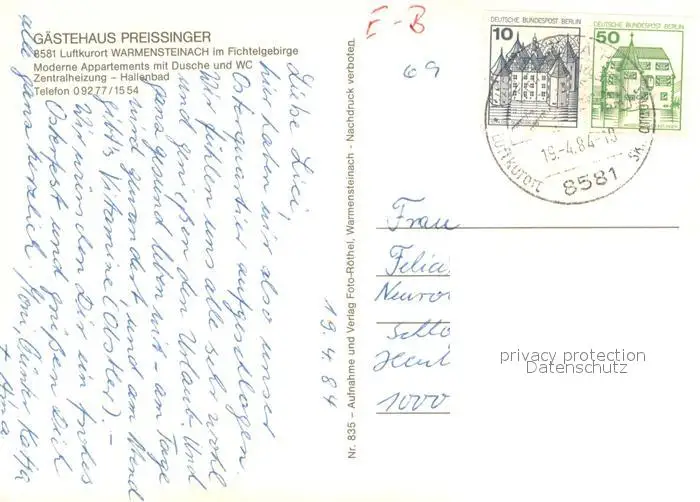 GÄSTEHAUS PREISSINGER
8581 Luftkurort WARMENSTEINACH im Fichtelgebirge
Moderne Appartements mit Dusche und WC
Zentralheizung – Hallenbad
Telefon 0 92 77 / 15 54
Liebe Luci,
hier haben wir also unser
Osterquartier aufgeschlagen.
Wir fühlen uns alle sehr wohl
und genießen den Urlaub. Und
ganz gesund leben wir - am Tage
wird gewandert und am Abend
gibt's Vitamine (Obstler). –
Wir wünschen Dir ein frohes
Osterfest und grüßen Dich
alle ganz herzlich, Günter, Katja
+ Oma
19.4.84
Nr. 835 – Aufnahme und Verlag Foto-Röthel, Warmensteinach - Nachdruck verboten.
E-B
69
DEUTSCHE BUNDESPOST BERLIN
10
DEUTSCHE BUNDESPOST BERLIN
50
19.-4.84-18
Luftkurort
8581
Frau
Felici
1000
privacy protection
Datenschutz